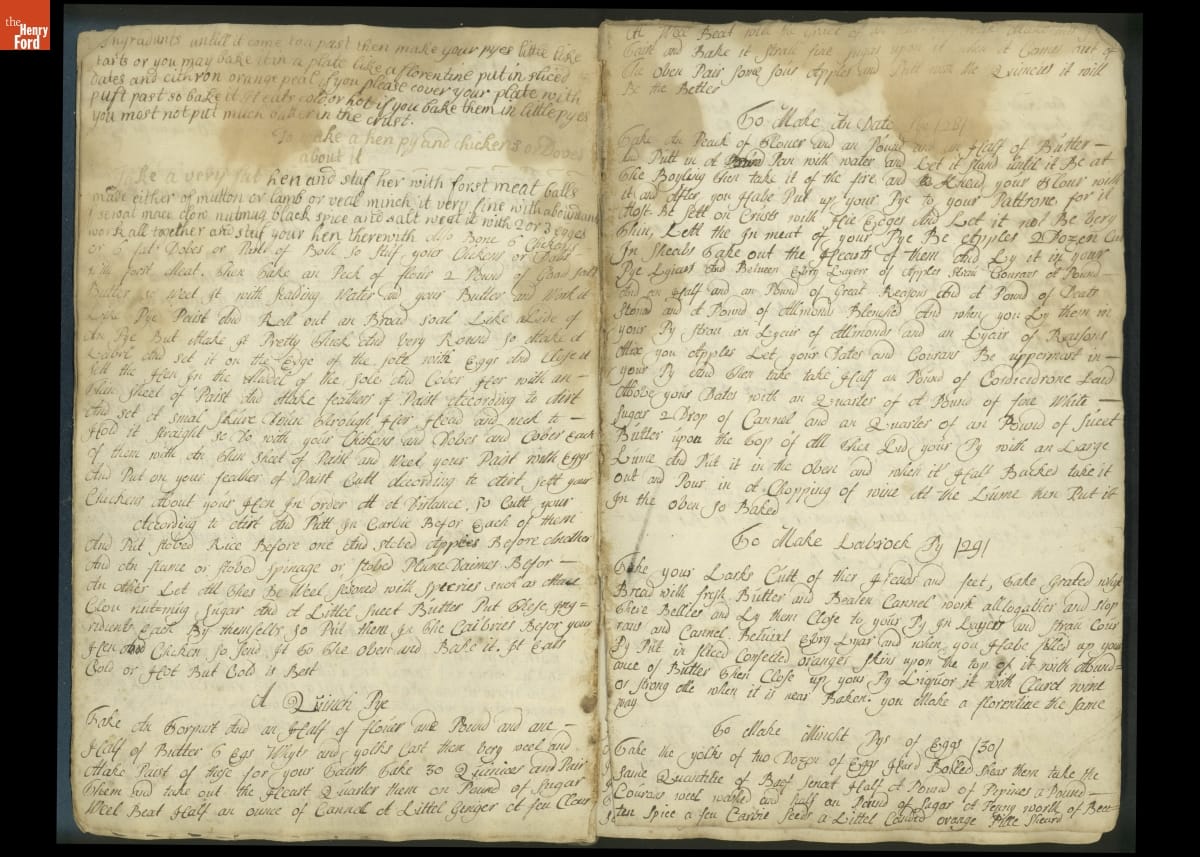 the
Henry
Ford
Ingradunts untill it come to a past then make your pyes little like
tarts or you may bake it in a plate like a florentine put in sliced
dates and cithron orange peal if you please cover your plate with
puft past so bake it it eats cold or hot if you bake them in little pyes
you most not put much in the crust.
To make a hen py and chickens or Doves
about it
Take a very fat hen and stuf her with forst meat balls
made either of mutton or lamb or veal minch it very fine with abundans
mace clove nutmug black spice and salt weet it with 2 or 3 egges
work all together and stuf your hen therewith also Bone 6 Chickens
or 6 fat Dobes or Part of Both so Stuf your Chikens or Fouls
with forst Meat. then take an Peck of flour 2 Pound of Good salt
Butter so Weet It with scalding Water and your Butter and Work it
Like Pye Paist And Roll out an Broad soal Like a Lide of
an Pye But Make It Pretty thick And Very Round so Make a
Label and set it on the Edge of the sole with Eggs and Close it
sett the Hen In the Madel of the sole And Cober Her with an
thin sheet of Paist and Make feathers of Paist according to Airt
And set a smal skure Doun through Her Head and neck to
Hold it straight so Do with your Chikens and Dobes and Cober Each
of them with an thin sheet of Paist and Weet your Paist with Eggs
And Put on your feather of Paist Cutt according to Airt sett your
Chickens About your Hen In order At a Distance. so Cutt your
according to Airt And Putt In Before Each of them
And Put stoved Rice Before one And stobed Apples Before Another
And an or stobed spinage or stobed Before
An other Let All thes Be Weel seasoned with speceries such as Mace
Clou nutmig Sugar and a Littel sueet Butter Put these Ing=
ridients Each By themselfs so Put them In the Before your
Hen and Chicken so send It to the oben and Bake it. It Eats
Cold or Hot But Cold is Best
A Quinch Pye
Take An forpart And an Half of flour ane Pound and ane
Half of Butter 6 Egs Whyts and yolks Cast them bery weel and
Make Past of these for your Take 30 Quinces and Pair
them and take out the Heart Quarter them on Pound of Sugar
Weel Beat Half an ounce of Cannel a Littel Ginger a feu Clous
All Weel Beat with the of
and Bake it strau fine sugar upon it when it Comes out of
the oben Pair some sour Apples and Putt with the Quincies it will
Be the Better
To Make An Date Pye /28/
Take An Peack of flouer and an Pound and an Half of Butter
and Putt in a Pan with water and Let it stand untill it Be at
the Boyling then take it of the fire and knead your flour with
it and After you Habe Put up your Pye to your Pattrone for it
Most Be sett on Crusts with Hie Edges and Let it not Be Bery
thin, Lett the In meat of your Pye Be Apples 2 Dozen Cut
In Take out the Hearts of them And Ly it in your
Pye Lyairs And Between Ebry Layer of Apples strau Courans a Pound
and an Half and an Pound of Great Reasons And a Pound of Deats
Stoned and a Pound of Allmonds Blenshed And when you Ly them in
your Py strau an Lyair of Allmonds and an Lyair of Reasons
Abov you Apples Let your Dates and Courans Be uppermost in
your Py And then take take Half an Pound of Cordicidrone Laid
Above your Dates with an Quarter of a Pound of fine White
sugar 2 Drop of Cannel and an Quarter of an Pound of sueet
Butter upon the top of All then Lid your Py with an Large
Lume And Put it in the Oben and when it Half Backed take it
out and Pour in a Chopping of wine At the Lume then Put it
In the oben so Baked
To Make Labrock Py /29/
Take your Larks Cutt of ther Heads and feet, Take Grated whyt
Bread with fresh Butter and Beaten Cannel work alltogather and stop
there Bellies and Ly them Close to your Py In Layers and strau Cour
rans and Cannel. Betuixt Ebry Lyar and when you Habe filled up your
Py Put in sliced Confected oranger skins upon the top of it with Abund=
ance of Butter then Close up your Py Liquor it with Claret wine
or strong Ale when it is near Baken. you Make a florentine the same
way
To Make Mincht Pys of Eggs /30/
Take the yolks of two Dozon of Eggs Hard Boiled shear them take the
same Quantitie of Half a Pound of Pepines a Pound
Courans weel washed and half an Pound of Sugar a Penny worth of Bea=
ten Spice a feu Carbie seeds a Littel Candied orange Pille sheard